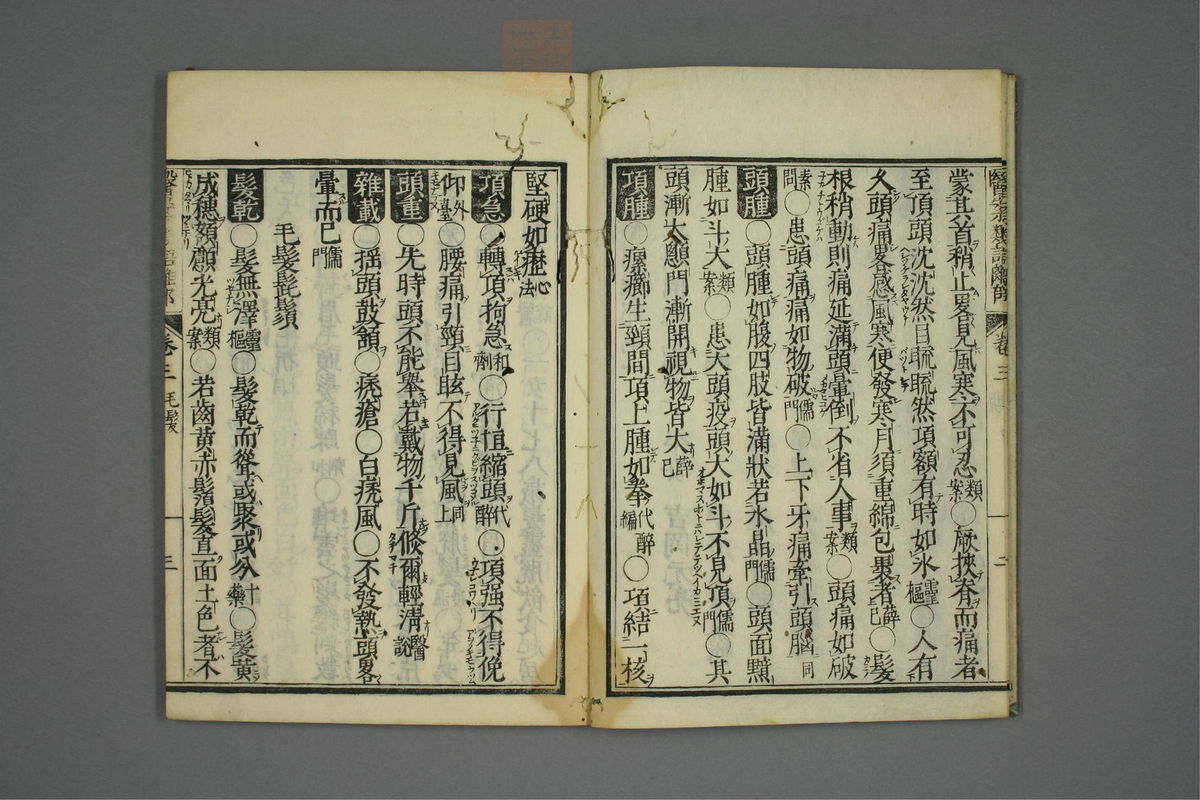 蒙其首稍止畧見風寒不可忍類案〇厥挾脊而痛者
至頂頭沈沈然目䀮䀮然項額有時如氷靈樞〇人有
久頭痛畧感風寒便發寒月須重綿包裹者薛己〇髮
根稍動則痛延滿頭暈倒不省人事類案〇頭痛如破
素問〇患頭痛痛如物破儒門〇上下牙痛牽引頭腦同
頭腫〇頭腫如腹四肢皆滿狀若水晶儒門〇頭面黯
腫如斗大類案〇患大頭疫頭大如斗不見頂儒門〇其
頭漸大顖門漸開視物皆大薛己
項腫〇瘰癧生頸間項上腫如拳代醉編〇項結一核
堅硬如瀝心法
項急〇轉項拘急和劑〇行恒縮頭代醉〇項强不得俛
仰外臺〇腰痛引頸目眩不得見風同上
頭重〇先時頭不能舉若戴物千斤倐爾輕清醫說
雜載〇搖頭鼓頷〇禿瘡〇白禿風〇不發熱頭畧
暈而已儒門
毛髮髭鬚
髮乾〇髮無澤靈樞〇髮乾而聳或聚或分十藥〇髮黃
成穗額顱光亮類案〇若齒黃赤鬚髮直面土色者不
卷三 毛髮 三